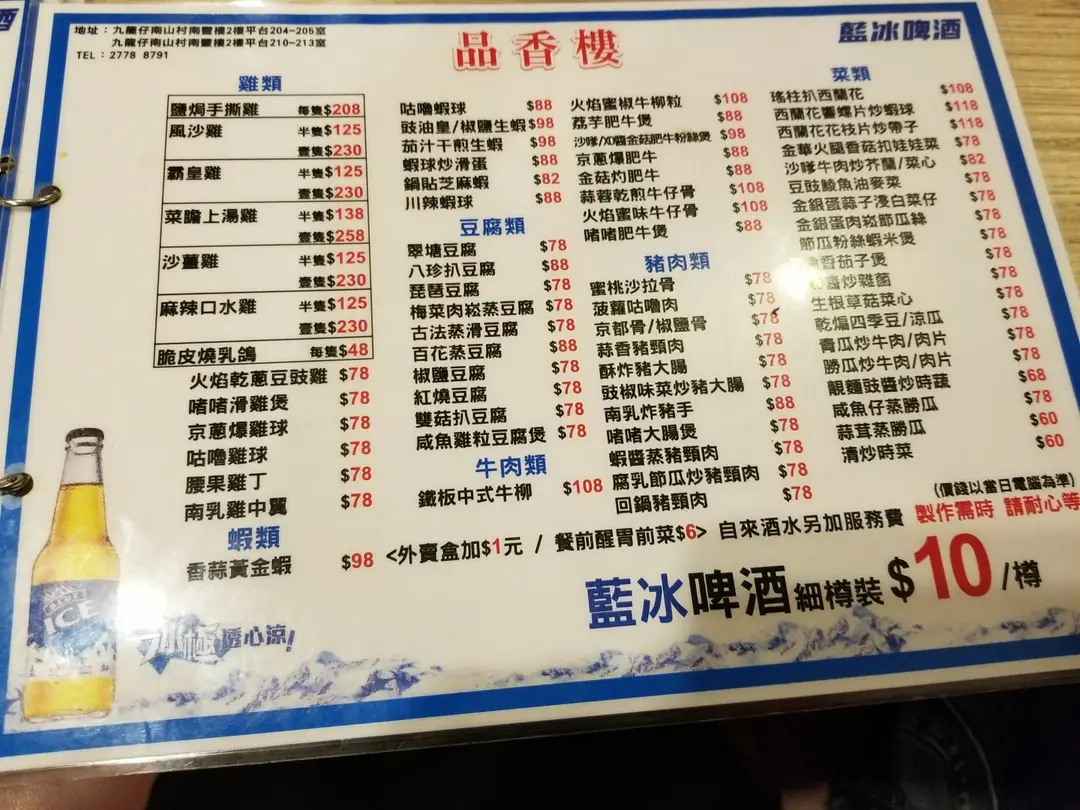 地址：九龍仔南山村南豐樓2樓平台204-205室
九龍仔南山村南豐樓2樓平台210-213室
TEL：2778 8791
品香樓
藍冰啤酒
雞類
鹽焗手撕雞 每隻$208
風沙雞 半隻$125
壹隻$230
霸皇雞 半隻$125
壹隻$230
菜膽上湯雞 半隻$138
壹隻$258
沙薑雞 半隻$125
壹隻$230
麻辣口水雞 半隻$125
壹隻$230
脆皮燒乳鴿 每隻$48
火焰乾蔥豆豉雞 $78
啫啫滑雞煲 $78
京蔥爆雞球 $78
咕嚕雞球 $78
腰果雞丁 $78
南乳雞中翼 $78
蝦類
香蒜黃金蝦 $98
咕嚕蝦球 $88
豉油皇/椒鹽生蝦 $98
茄汁干煎生蝦 $98
蝦球炒滑蛋 $88
鍋貼芝麻蝦 $82
川辣蝦球 $88
豆腐類
翠塘豆腐 $78
八珍扒豆腐 $88
琵琶豆腐 $78
梅菜肉崧蒸豆腐 $78
古法蒸滑豆腐 $78
百花蒸豆腐 $88
椒鹽豆腐 $78
紅燒豆腐 $78
雙菇扒豆腐 $78
咸魚雞粒豆腐煲 $78
牛肉類
鐵板中式牛柳 $108
火焰蜜椒牛柳粒 $108
荔芋肥牛煲 $88
沙嗲/XO醬金菇肥牛粉絲煲 $98
京蔥爆肥牛 $88
金菇灼肥牛 $88
蒜蓉乾煎牛仔骨 $108
火焰蜜味牛仔骨 $108
啫啫肥牛煲 $88
豬肉類
蜜桃沙拉骨 $78
菠蘿咕嚕肉 $78
京都骨/椒鹽骨 $78
蒜香豬頸肉 $78
酥炸豬大腸 $78
豉椒味菜炒豬大腸 $78
南乳炸豬手 $88
啫啫大腸煲 $78
蝦醬蒸豬頸肉 $78
腐乳節瓜炒豬頸肉 $78
回鍋豬頸肉 $78
菜類
瑤柱扒西蘭花 $108
西蘭花響螺片炒蝦球 $118
西蘭花花枝片炒帶子 $118
金華火腿香菇扣娃娃菜 $78
沙嗲牛肉炒芥蘭/菜心 $82
豆豉鯪魚油麥菜 $78
金銀蛋蒜子浸白菜仔 $78
金銀蛋肉崧節瓜絲 $78
節瓜粉絲蝦米煲 $78
香茄子煲 $78
醬炒雜菌 $78
生根草菇菜心 $78
乾煸四季豆/涼瓜 $78
青瓜炒牛肉/肉片 $78
勝瓜炒牛肉/肉片 $78
靚麵豉醬炒時蔬 $68
咸魚仔蒸勝瓜 $78
蒜茸蒸勝瓜 $60
清炒時菜 $60
(價錢以當日電腦為準)
<外賣盒加$1元 / 餐前醒胃前菜$6> 自來酒水另加服務費 製作需時 請耐心等
藍冰啤酒細樽裝 $10/樽
BLUE
ICE
冰極透心涼!